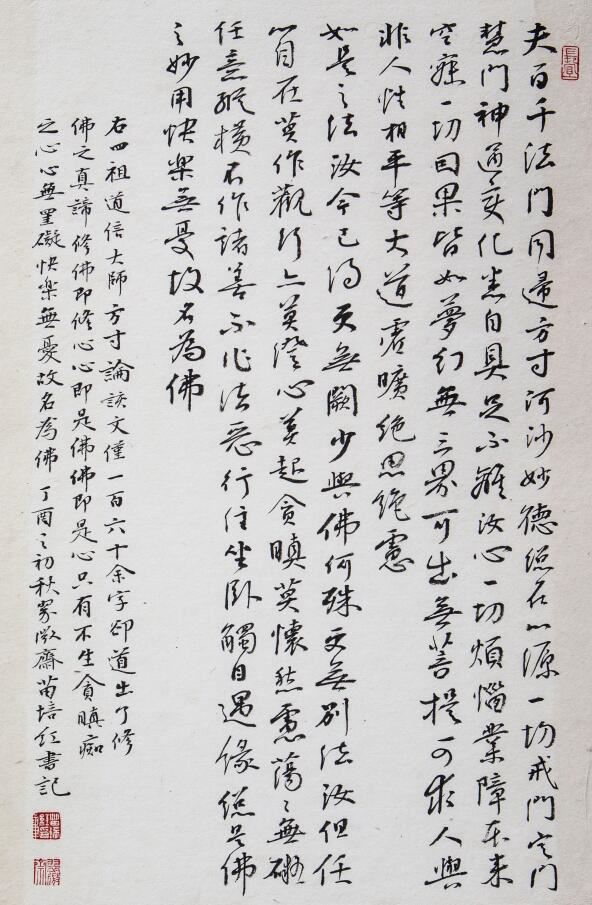 夫百千法門同歸方寸河沙妙德總在心源一切戒門定門
慧門神通變化悉自具足不離汝心一切煩惱業障本來
空寂一切因果皆如夢幻無三界可出無菩提可求人與
非人性相平等大道虛曠絕思絕慮
如是之法汝今已得更無闕少與佛何殊更無別法汝但任
心自在莫作觀行亦莫澄心莫起貪瞋莫懷愁慮蕩々無礙
任意縱橫不作諸善不作諸惡行住坐臥觸目遇緣總是佛
之妙用快樂無憂故名為佛
右四祖道信大師方寸論該文僅一百六十余字卻道出了修
佛之真諦修佛即修心心即是佛佛即是心只有不生貪瞋痴
之心心無罣礙快樂無憂故名為佛 丁酉之初秋齋苗培紅書記